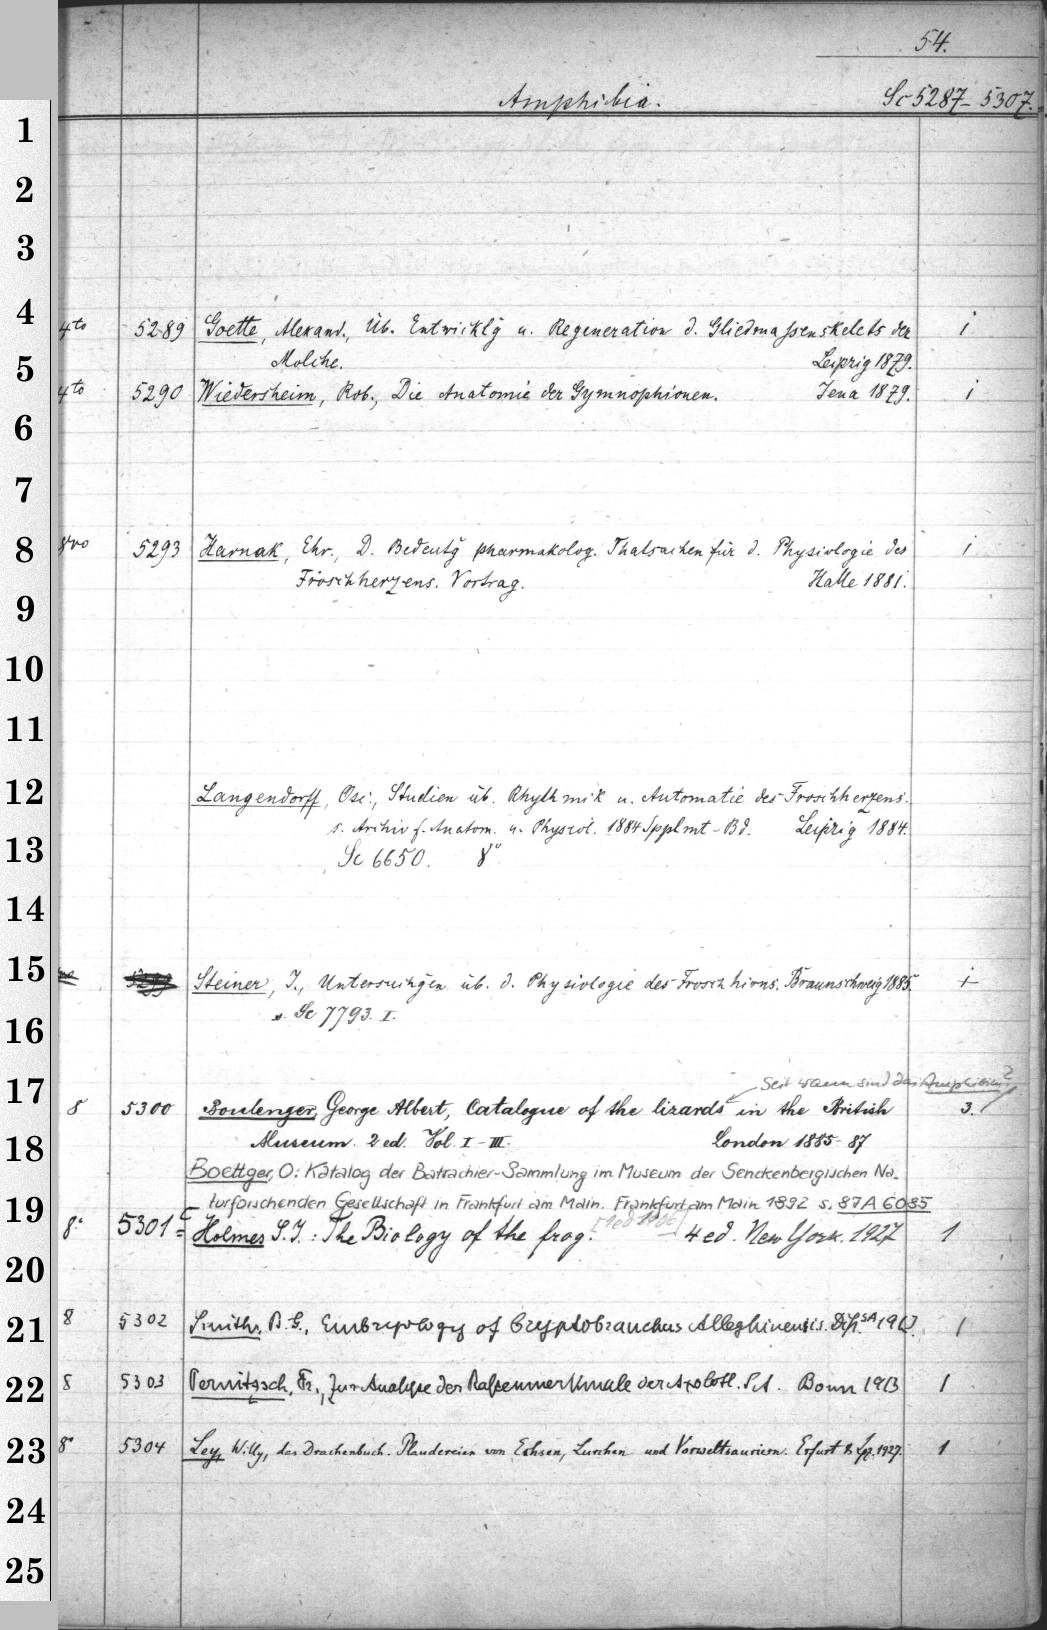 54.
Amphibia. Sc 5287-5307.
1
2
3
4
4to 5289 Goette, Alexand., Üb. Entwicklg u. Regeneration d. Gliedmassenskelets der i
Molche. Leipzig 1879.
5
4to 5290 Wiedersheim, Rob., Die Anatomie der Gymnophionen. Jena 1879. i
6
7
8
8vo 5293 Harnak, Ehr., D. Bedeutg pharmakolog. Thatsachen für d. Physiologie des i
Froschherzens. Vortrag. Halle 1881.
9
10
11
12
Langendorff, Osc., Studien üb. Rhythmik u. Automatie des Froschherzens.
s. Archiv f. Anatom. u. Physiol. 1884 Spplmt-Bd. Leipzig 1884.
13
Sc 6650. 8°
14
15
5299 Steiner, J., Untersuchgen üb. d. Physiologie des Froschhirns. Braunschweig 1885. i
s. Sc 7793. I.
16
Seit wann sind das Amphibien?
17
8 5300 Boulenger, George Albert, Catalogue of the lizards in the British 3.
Museum. 2 ed. Vol. I-III. London 1885-87
18
Boettger, O: Katalog der Batrachier-Sammlung im Museum der Senckenbergischen Na-
turforschenden Gesellschaft in Frankfurt am Main. Frankfurt am Main 1892 s. 87 A 6035
19
8° 5301 Holmes S.J.: The Biology of the frog. 4 ed. New York. 1927 1
20
8 5302 Smith, B.G., Embryology of Cryptobranchus Alleghiniensis. Diss. SA 1
21
8 5303 Pernitzsch, Fr., Zur Analyse der Rassenmerkmale der Axolotl. SA. Bonn 1913 1
22
8° 5304 Ley, Willy, das Drachenbuch. Plaudereien von Echsen, Lurchen und Vorweltsauriern. Erfurt & Lpz. 1927. 1
23
24
25